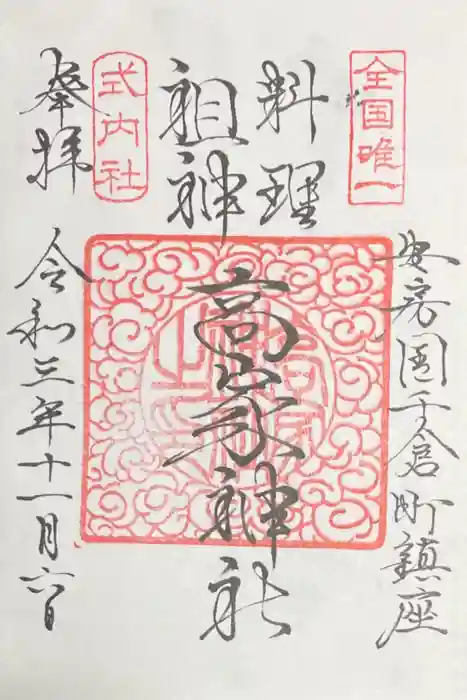 全国唯一
安房国千倉町鎮座
料理
祖神
高家神社
式内社
奉拝
令和三年十一月六日